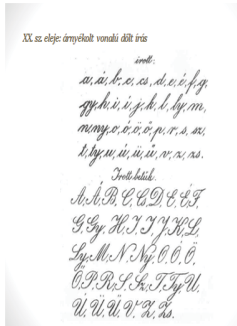 XX. sz. eleje: árnyékolt vonalú dőlt írás
irott.
a, á, b, c, cs, d, e, é, f, g,
gy, h, i, í, j, k, l, ly, m,
n, ny, o, ó, ö, ő, p, r, s, sz,
t, ty, u, ú, ü, ű, v, z, zs.
Irott betük.
A, Á, B, C, Cs, D, E, É, F,
G, Gy, H, I, Í, J, K, L,
Ly, M, N, Ny, O, Ó, Ö,
Ő, P, R, S, Sz, T, Ty, U,
Ú, Ü, Ű, V, Z, Zs.